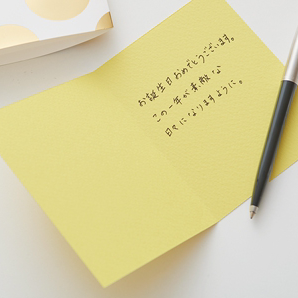 お誕生日おめでとうございます。
この一年が素敵な
日々になりますように。